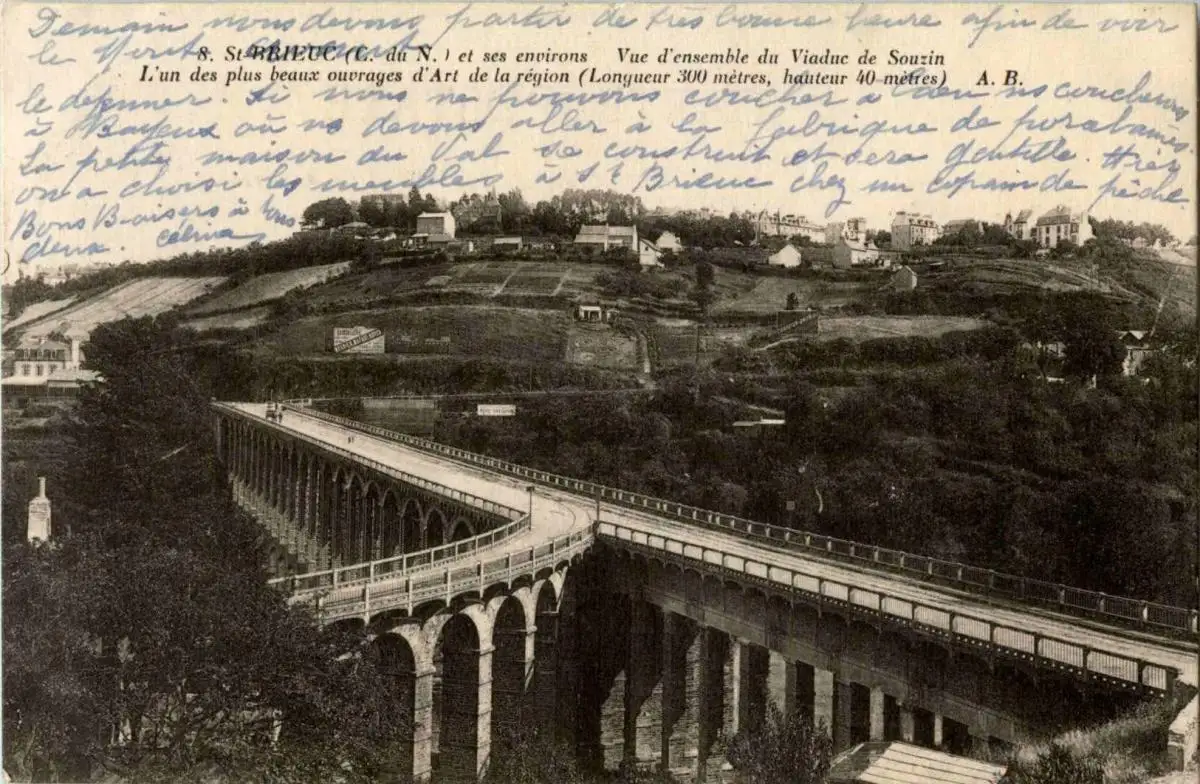 Demain nous devons partir de très bonne heure afin de voir
le Mont avant
8. St-BRIEUC (C. du N.) et ses environs Vue d'ensemble du Viaduc de Souzin
L'un des plus beaux ouvrages d'Art de la région (Longueur 300 mètres, hauteur 40 mètres) A. B.
le déjeuner. Si nous ne pouvons coucher à Caen ns coucherons
à Bayeux où ns devons aller à la fabrique de porcelaines.
La petite maison du Val se construit et sera gentille. Hier
on a choisi les meubles à St Brieuc chez un copain de pêche
Bons Baisers à tous
deux. Célina